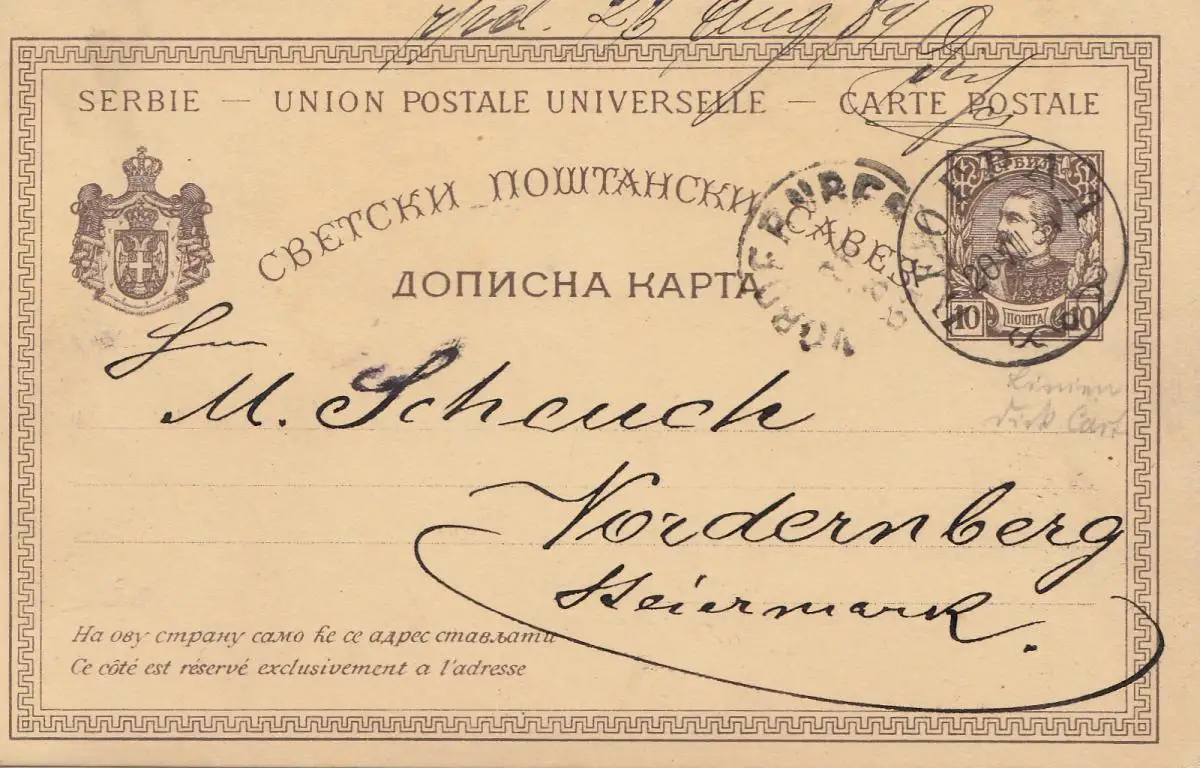 23 Aug 84
SERBIE — UNION POSTALE UNIVERSELLE — CARTE POSTALE
СВЕТСКИ ПОШТАНСКИ САВЕЗ
ДОПИСНА КАРТА
СРБИЈА
ПОШТА
10 10
VORDERNBERG
Herrn
M. Scheuch
Vordernberg
Steiermark.
Linien
dick Cart
На ову страну само ће се адрес стављати
Ce côté est réservé exclusivement a l'adresse